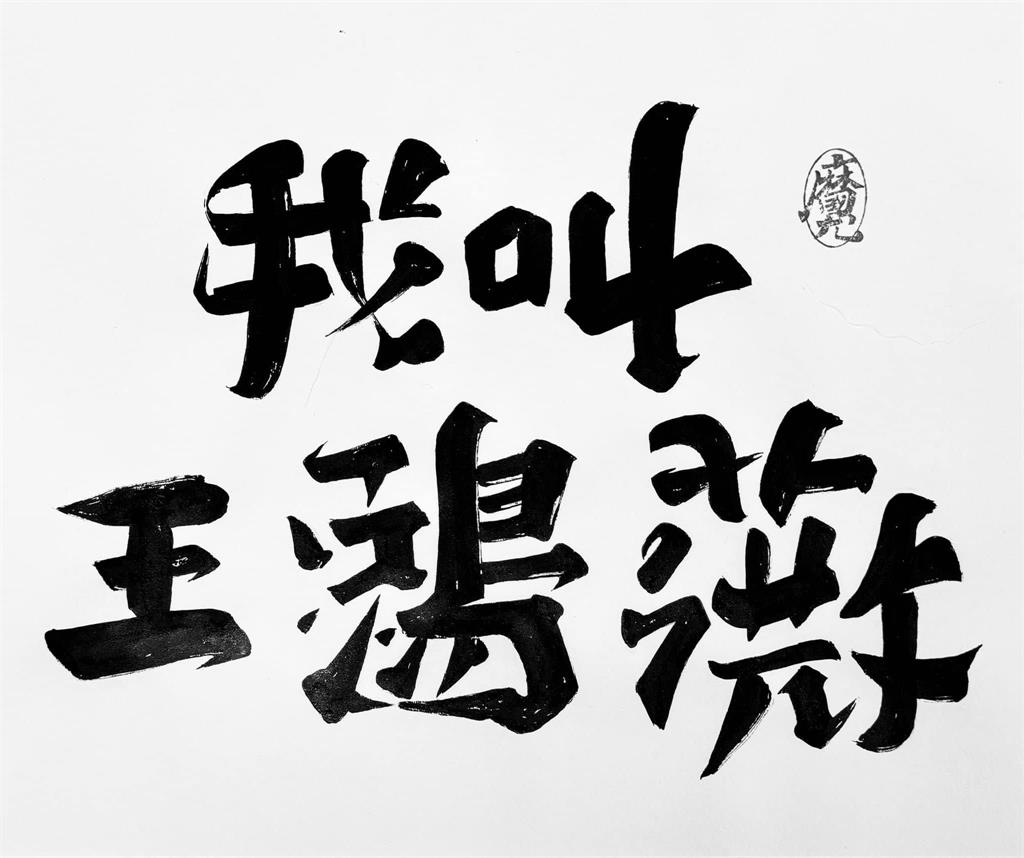 我叫
王鴻薇